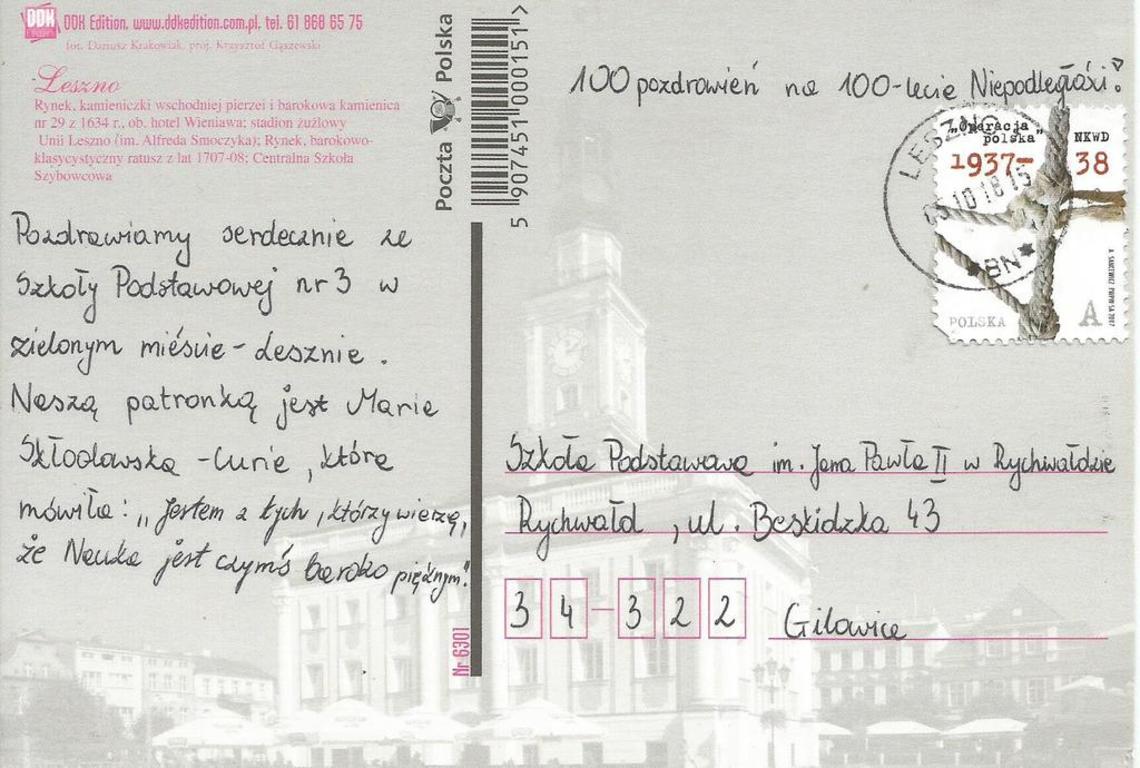 DDK Edition, www.ddkedition.com.pl, tel. 61 868 65 75
fot. Dariusz Krakowiak, proj. Krzysztof Gąszewski
Leszno
Rynek, kamieniczki wschodniej pierzei i barokowa kamienica
nr 29 z 1634 r., ob. hotel Wieniawa; stadion żużlowy
Unii Leszno (im. Alfreda Smoczyka); Rynek, barokowo-
klasycystyczny ratusz z lat 1707-08; Centralna Szkoła
Szybowcowa
Poczta Polska
5 907451 000151 >
100 pozdrowień na 100-lecie Niepodległości!
LESZNO
10 18 15
*BN*
„Operacja
polska"
NKWD
1937-38
POLSKA
A
Pozdrawiamy serdecznie ze
Szkoły Podstawowej nr 3 w
zielonym mieście - Lesznie.
Naszą patronką jest Maria
Skłodowska - Curie, która
mówiła: „Jestem z tych, którzy wierzą,
że Nauka jest czymś bardzo pięknym."
Nr 6301
Szkoła Podstawowa im. Jana Pawła II w Rychwałdzie
Rychwałd, ul. Beskidzka 43
34-322 Gilowice